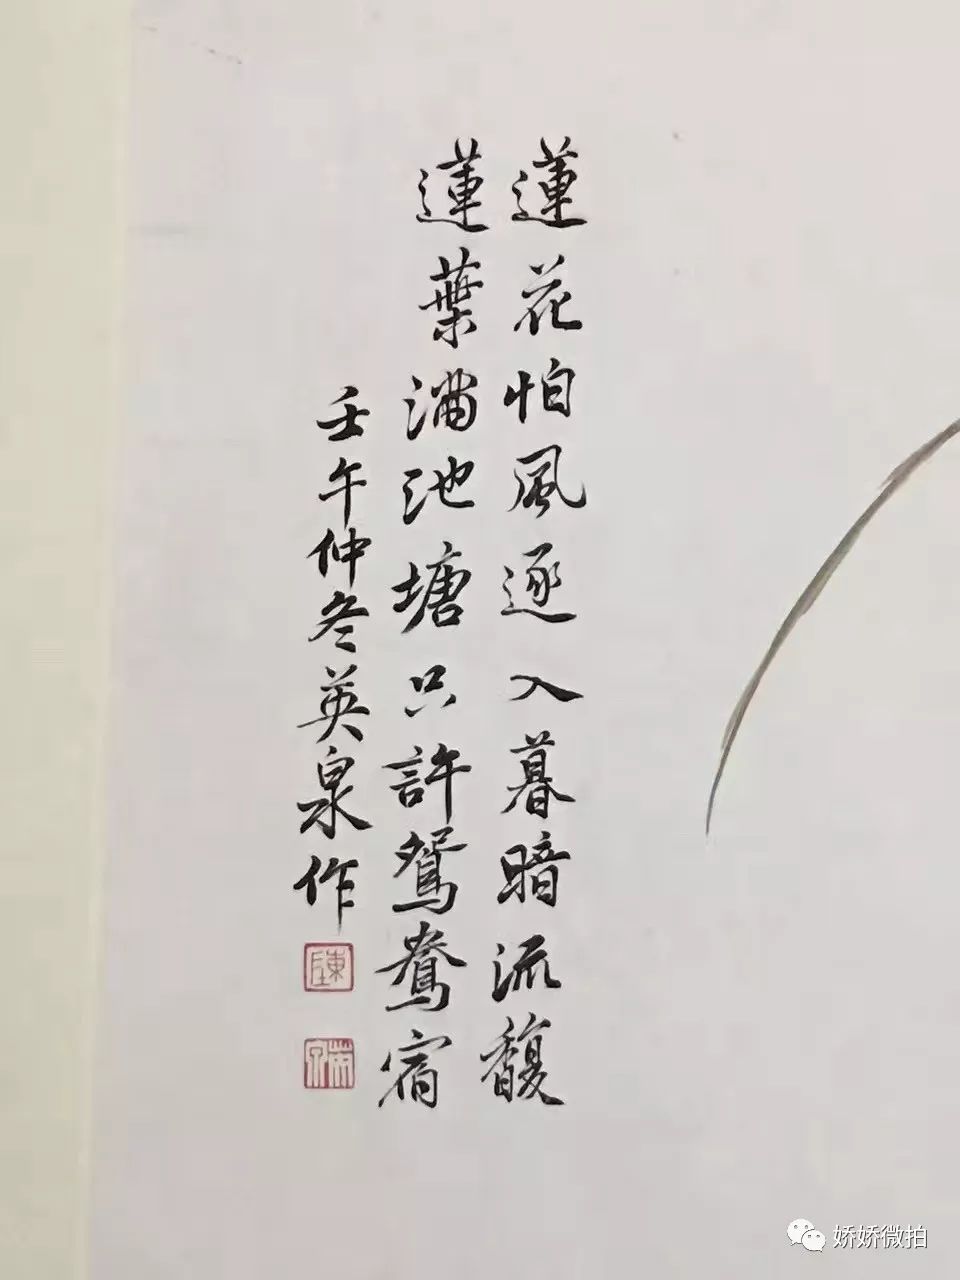 蓮花怕風逐入暮暗流馥
蓮葉滿池塘只許鴛鴦宿
壬午仲冬英泉作
陳
英泉
娇娇微拍